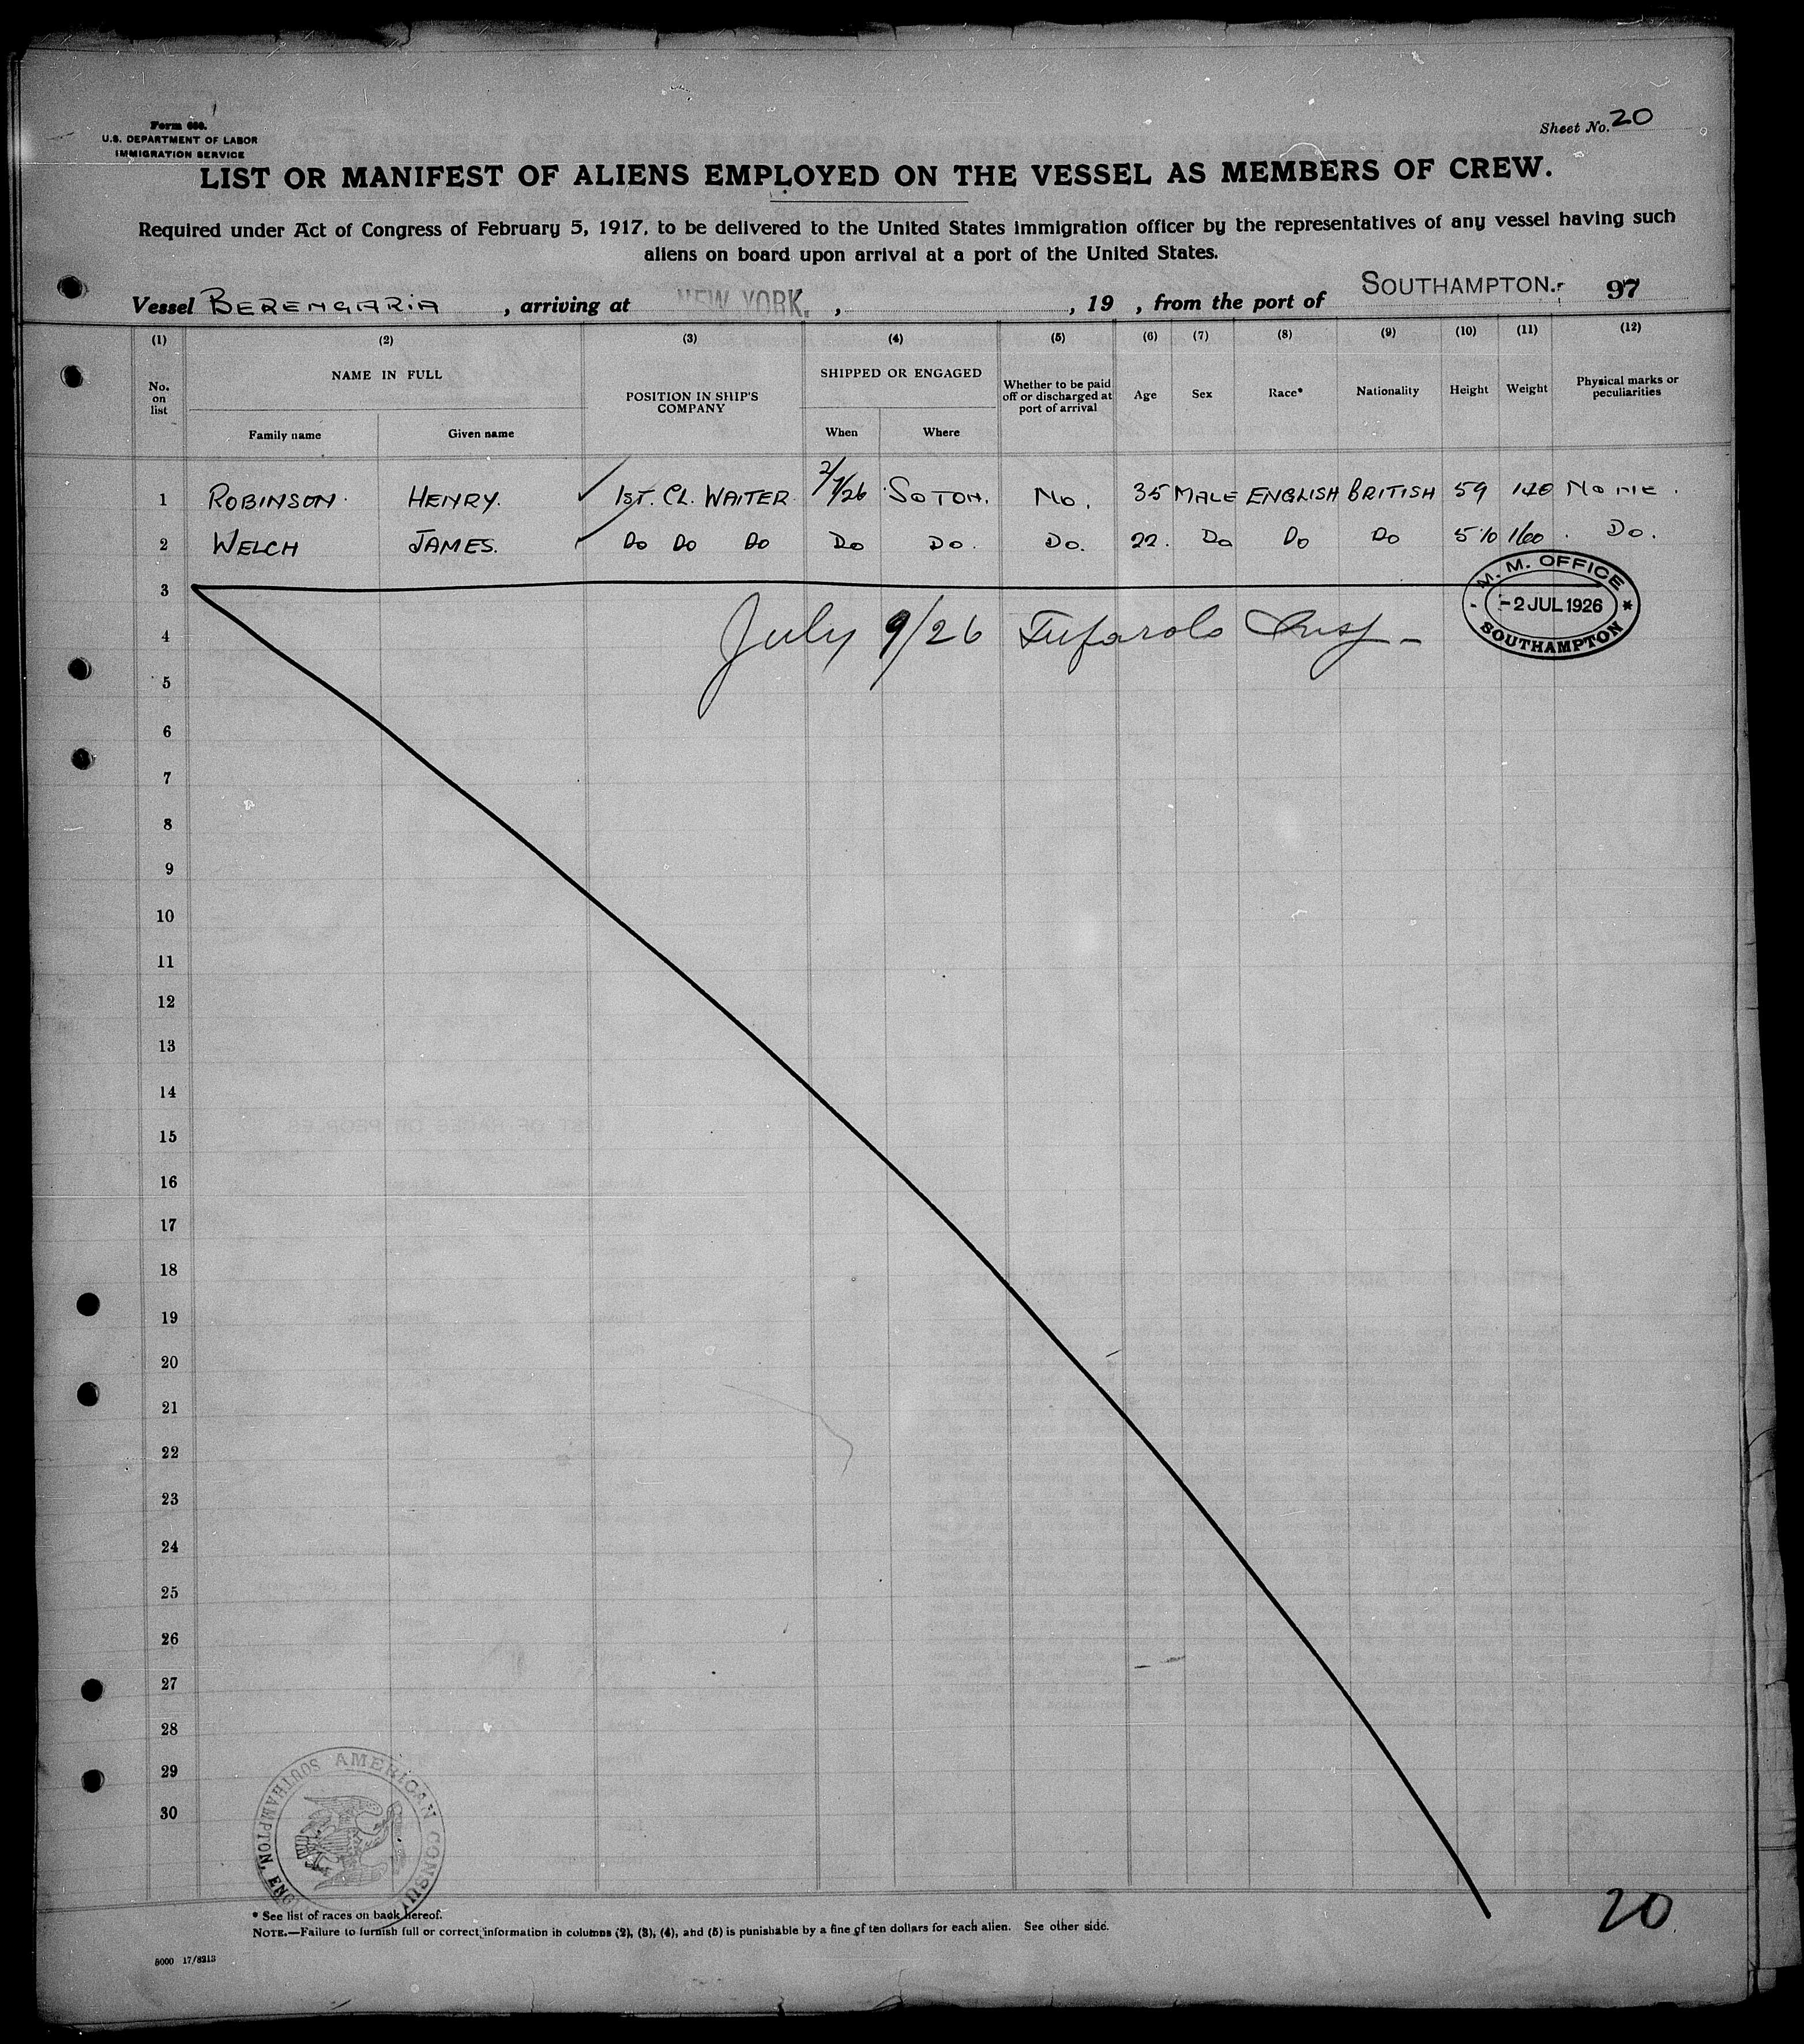 Form 680.
U.S. DEPARTMENT OF LABOR
IMMIGRATION SERVICE
Sheet No. 20
LIST OR MANIFEST OF ALIENS EMPLOYED ON THE VESSEL AS MEMBERS OF CREW.
Required under Act of Congress of February 5, 1917, to be delivered to the United States immigration officer by the representatives of any vessel having such
aliens on board upon arrival at a port of the United States.
Vessel BERENGARIA , arriving at NEW YORK. , , 19 , from the port of SOUTHAMPTON. 97
(1) (2) (3) (4) (5) (6) (7) (8) (9) (10) (11) (12)
No. on list NAME IN FULL Family name Given name POSITION IN SHIP'S COMPANY SHIPPED OR ENGAGED When Where Whether to be paid off or discharged at port of arrival Age Sex Race* Nationality Height Weight Physical marks or peculiarities
1 ROBINSON HENRY. 1ST. CL. WAITER 2/7/26 SOTON. No. 35 MALE ENGLISH BRITISH 59 140 NONE.
2 WELCH JAMES. Do Do Do Do Do. Do. 22. Do Do Do 5'10 160 Do.
3
M. M. OFFICE
-2 JUL 1926
SOUTHAMPTON
4 July 9/26 Insp
5
6
7
8
9
10
11
12
13
14
15
16
17
18
19
20
21
22
23
24
25
26
27
28
29
30
AMERICAN CONSUL
SOUTHAMPTON, ENG
* See list of races on back hereof.
20
NOTE.—Failure to furnish full or correct information in columns (2), (3), (4), and (5) is punishable by a fine of ten dollars for each alien. See other side.
5000 17/8213